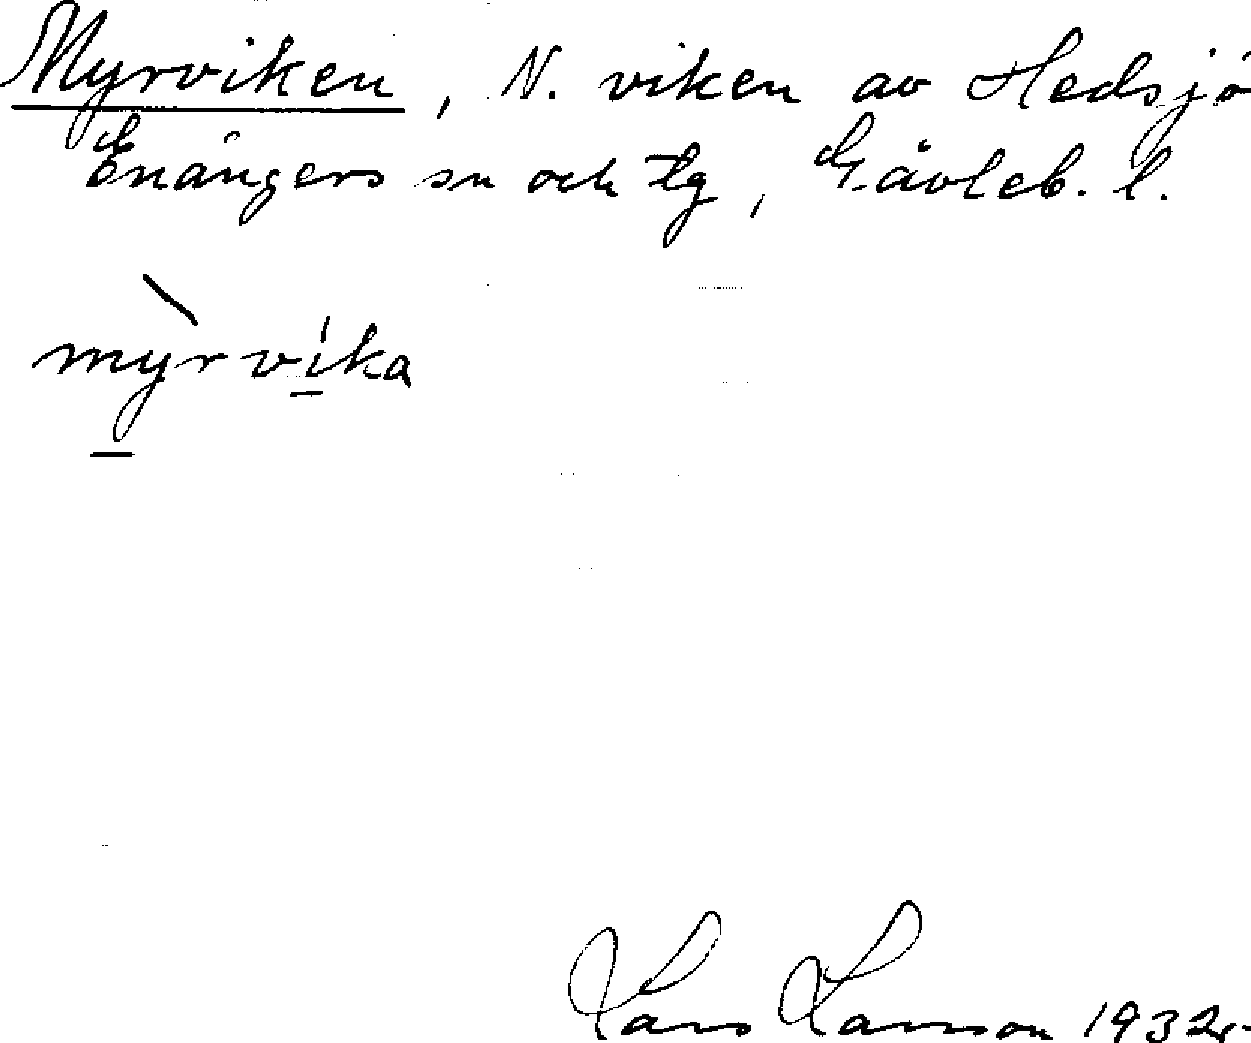 Myrviken, N. viken av Hedsjö
Enångers sn och tg, Gävleb. l.
my̱rvi̱ka
Lars Larsson 1932